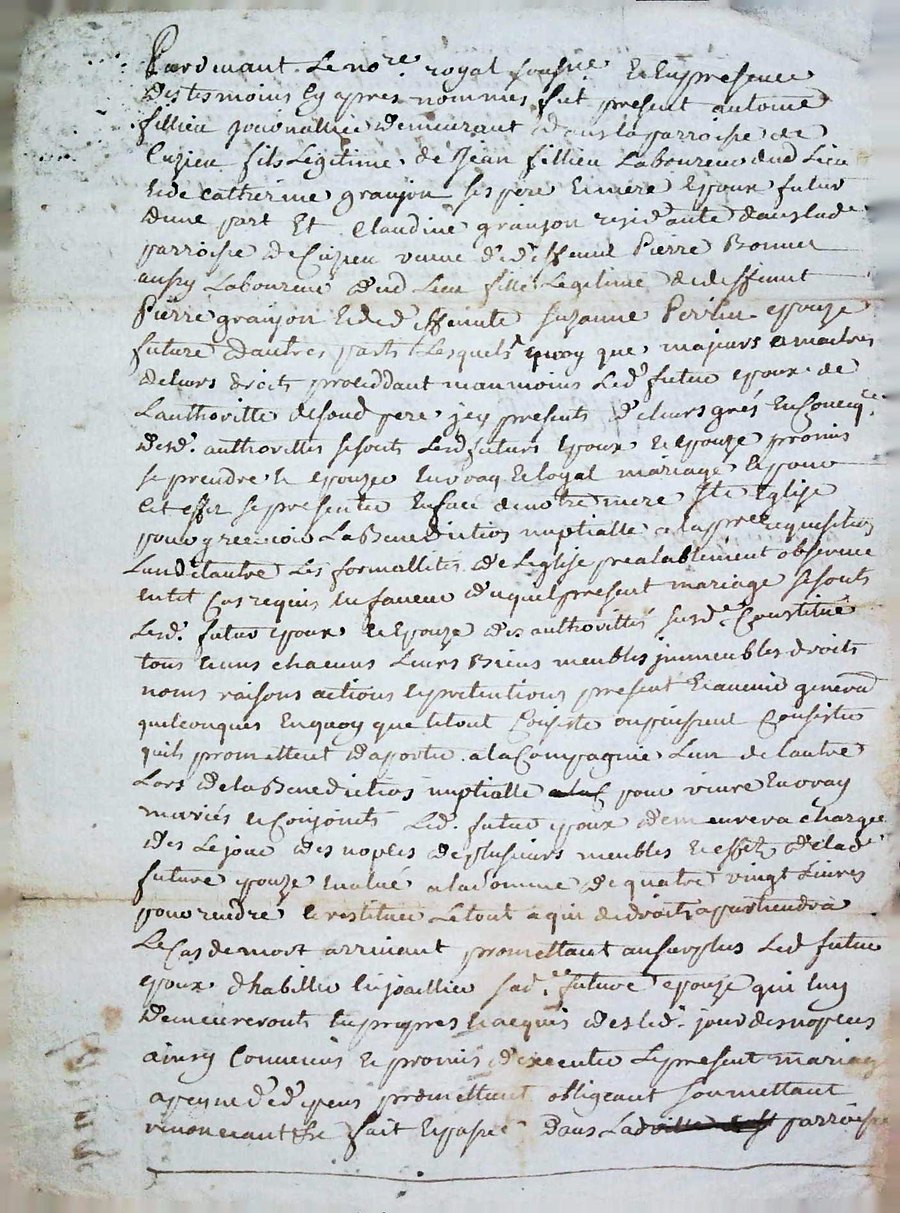 Pardevant Le no.re royal soussne et En presence
des tesmoins Cy apres nommes fut present antoine
fillieu journallier demeurant dans la parroisse de
Cuzieu fils Legitime de Jean fillieu Laboureur dud Lieu
et de catherine granjon ses pere et mere Epoux futur
d'une part Et Claudine granjon residante dans lad.e
parroisse de Cuzieu veuve de deffeunt Pierre Bonnet
aussy Laboureur dud Lieu fille Legitime de deffeunt
Pierre granjon et de deffeunte suzanne Perrin epouze
future d'autres parts Lesquels quoy que majeurs e maitres
de leurs droits proceddant neanmoins Led. futur epoux de
Lauthoritté de soud pere jcy present de leurs grés En Conceq.ce
desd. authorittés se sont Lesd futurs Epoux et epouze promis
se prendre et epouzer en vray et loyal mariage Et pour
Cet effet se presenter En face de notre mere ste Eglise
pour y recevoir La Benediction nuptialle a la pre requisition
Lun de lautre Les formallités de Leglise prealablement observée
en tel Cas requis En faveur duquel present mariage se sont
Lesd. futur epoux et Epouze des authorittés susd.es Constitué
tous et uns chacuns Leurs Biens meubles jmmeubles droits
noms raisons actions Et pretentions present et avenir generall
quelconques En quoy que le tout Consiste ou puissent Consister
quils promettent d'aporter a la Compagnie Lun de lautre
Lors de la Benediction nuptialle pour vivre En vray
mariés et Conjoints Led. futur epoux demeurera chargé
des Le jour des nopces de plusieurs meubles et effets de lad.e
future epouze Evalué a la somme de quatre vingt Livres
pour rendre et restituer Le tout a qui de droit apartiendra
Le Cas de mort arrivant promettant au surplus Led futur
epoux d'habiller Enjoailler sad.e future epouze qui luy
demeureront En propres et acquis des led. jour des nopces
ainsy Convenus et promis d'executer Le present mariag
a peyne de depens promettant obligeant soumettant
renonceant &c fait Et passé dans Lad parroisse